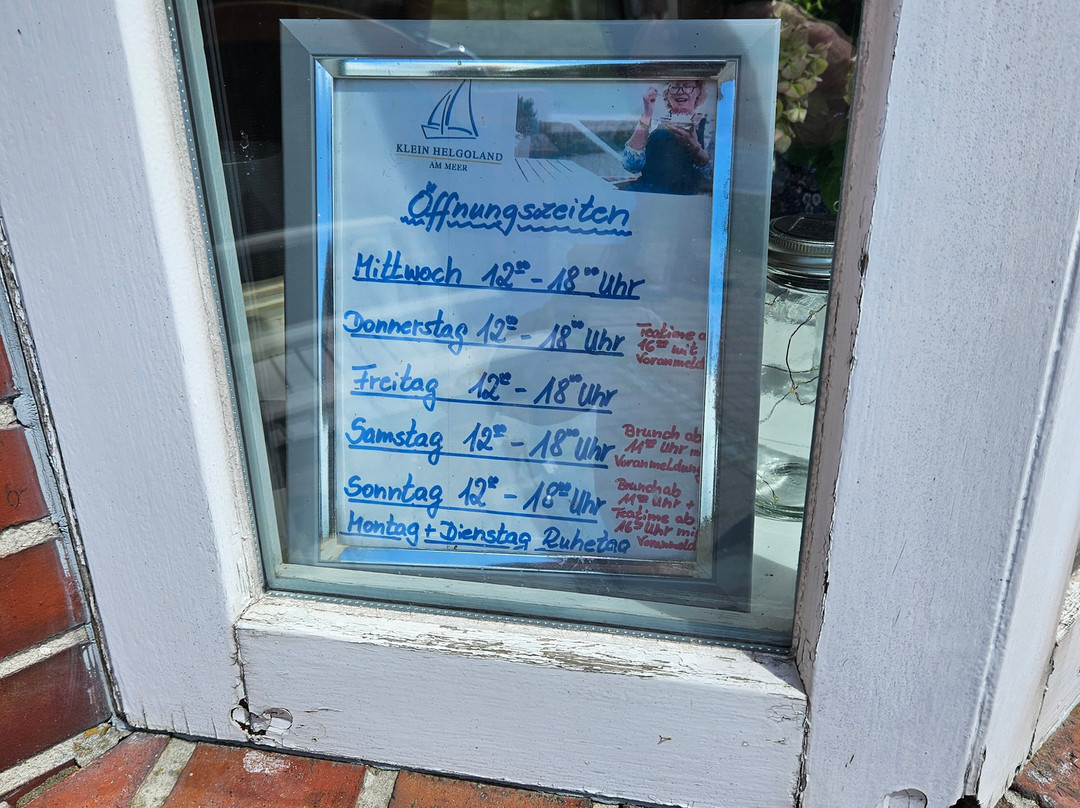 KLEIN HELGOLAND
AM MEER
Öffnungszeiten
Mittwoch 12⁰⁰ - 18⁰⁰ Uhr
Donnerstag 12⁰⁰ - 18⁰⁰ Uhr
Teatime a
16⁰⁰ mit
Voranmeld
Freitag 12⁰⁰ - 18⁰⁰ Uhr
Samstag 12⁰⁰ - 18⁰⁰ Uhr
Brunch ab
11⁰⁰ Uhr m
Voranmeldung
Sonntag 12⁰⁰ - 18⁰⁰ Uhr
Brunch ab
11⁰⁰ Uhr +
Teatime ab
16⁰⁰ Uhr mi
Voranmeld
Montag + Dienstag Ruhetag